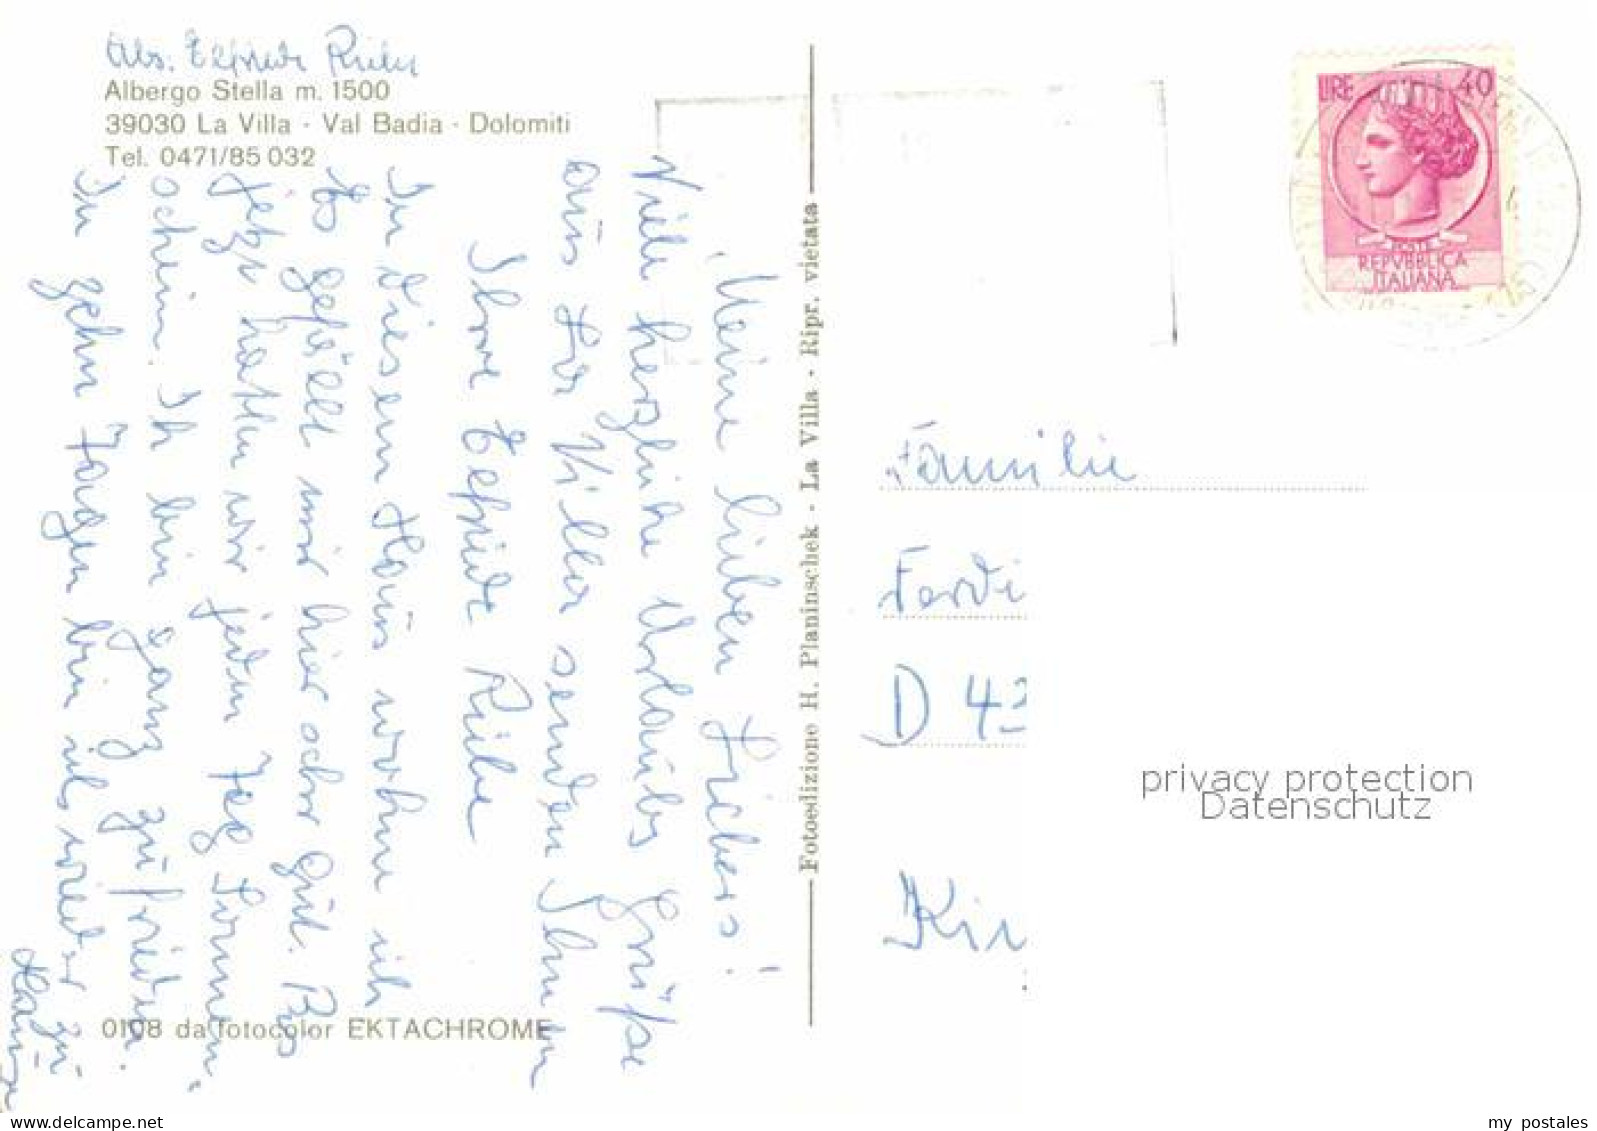 Abs. Elfriede Riehe
Albergo Stella m. 1500
39030 La Villa - Val Badia - Dolomiti
Tel. 0471/85 032
Meine lieben
Viele herzliche Urlaubs Grüße
aus La Villa senden Ihnen
Ihre Elfriede Riehe
In diesem Haus wohne ich
Es gefällt mir hier sehr gut. Bis
jetzt hatten wir jeden Tag Sonnen
schein. Ich bin ganz zufrieden.
In zehn Tagen bin ich wieder zu
Hause
0108 da fotocolor EKTACHROME
Fotoedizione H. Planinschek - La Villa - Ripr. vietata
LIRE 40
POSTE
REPVBBLICA
ITALIANA
Familie
Ferdi
D 43
Kir
privacy protection
Datenschutz
my postales